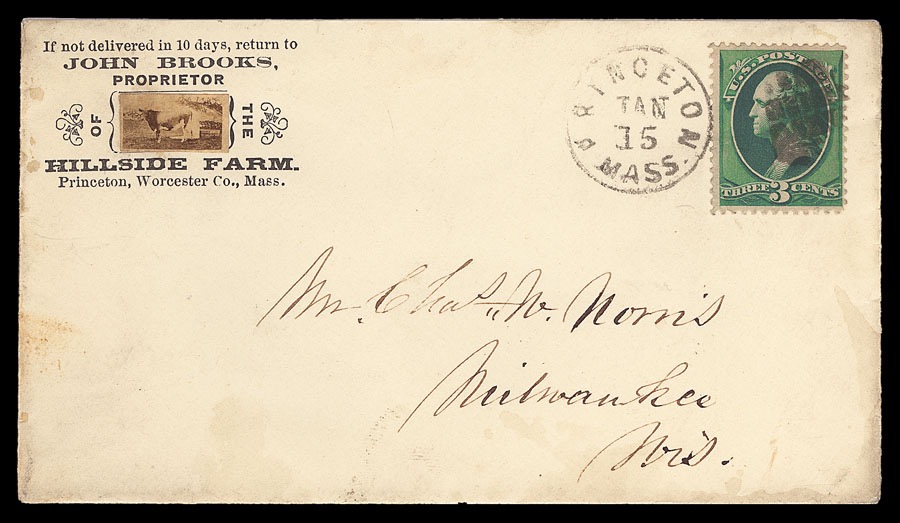 If not delivered in 10 days, return to
JOHN BROOKS,
PROPRIETOR
OF THE
HILLSIDE FARM.
Princeton, Worcester Co., Mass.
PRINCETON
JAN
15
MASS.
U.S. POSTAGE
THREE 3 CENTS
Mr. Chas. W. Norris
Milwaukee
Wis.